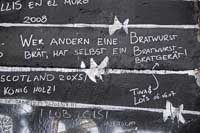 LLIS EN EL MURO
2008
WER ANDERN EINE BRATWURST
BRÄT, HAT SELBST EIN BRATWURST-
BRATGERÄT-!
SCOTLAND 20XS
KÖNIG HOLZ!
TINA &